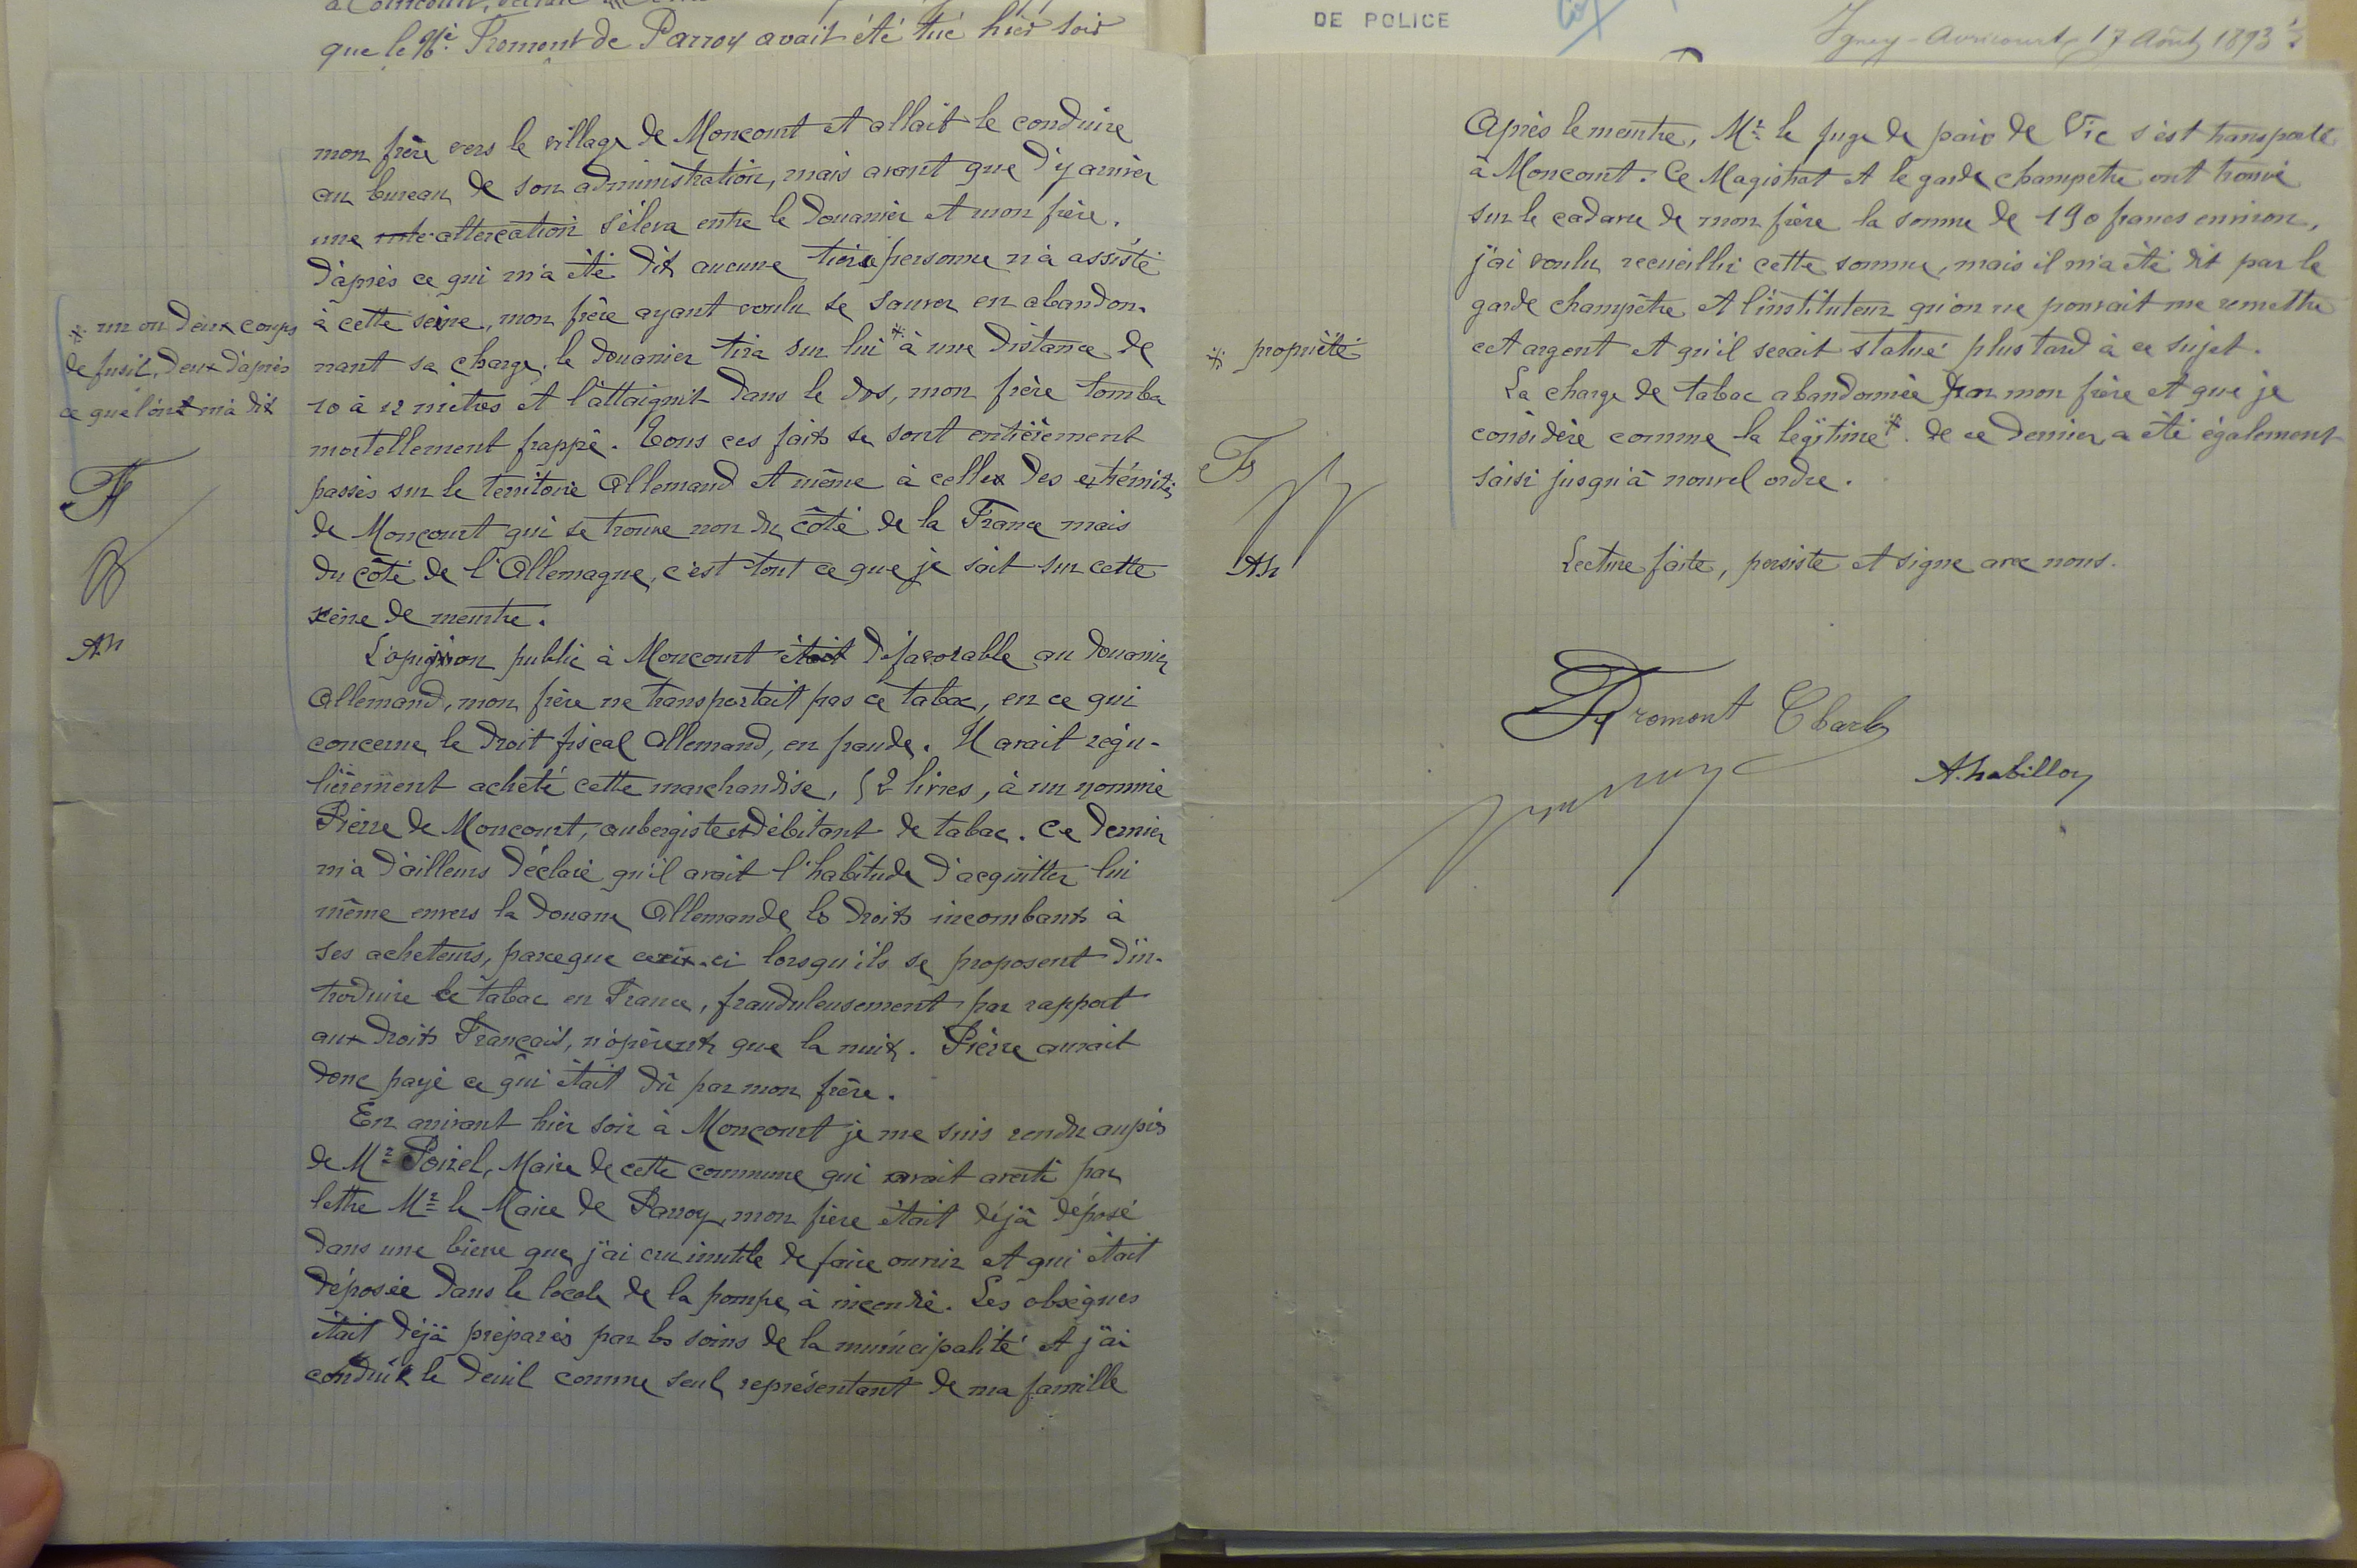 que le né. Fromont de Parroy avait été tué hier soir
DE POLICE
Igney-Avricourt, 17 Août 1893
mon frère vers le village de Moncourt et allait le conduire
au bureau de son administration, mais avant que d'y arriver
une altercation s'éleva entre le douanier et mon frère.
D'après ce qui m'a été dit aucune tierce personne n'a assisté
à cette scène, mon frère ayant voulu se sauver en abandon-
nant sa charge, le douanier tira sur lui * à une distance de
10 à 12 mètres et l'attaignit dans le dos, mon frère tomba
mortellement frappé. Tous ces faits se sont entièrement
passés sur le territoire Allemand et même à celle des extrémités
de Moncourt qui se trouve non du côté de la France mais
du côté de l'Allemagne, c'est tout ce que je sait sur cette
scène de meurtre.
* un ou deux coups
de fusil, deux d'après
ce que l'on m'a dit
F
Ah
L'opinion public à Moncourt était défavorable au douanier
Allemand, mon frère ne transportait pas ce tabac, en ce qui
concerne le droit fiscal Allemand, en fraude. Il avait régu-
lièrement acheté cette marchandise, 52 livres, à un nommé
Pierre de Moncourt, aubergiste et débitant de tabac. Ce dernier
m'a d'ailleurs déclaré qu'il avait l'habitude d'acquitter lui
même envers la douane Allemande les droits incombants à
ses acheteurs, parceque ceux-ci lorsqu'ils se proposent d'in-
troduire le tabac en France, frauduleusement par rapport
aux droits Français, n'opèrent que la nuit. Pierre aurait
donc payé ce qui était dû par mon frère.
En arrivant hier soir à Moncourt je me suis rendu auprès
de Mr Poirel, Maire de cette commune qui avait averti par
lettre Mr le Maire de Parroy, mon frère était déjà déposé
dans une bière que j'ai cru inutile de faire ouvrir et qui était
déposée dans le locale de la pompe à incendie. Les obsèques
était déjà préparés par les soins de la municipalité et j'ai
conduit le deuil comme seul représentant de ma famille
Après le meurtre, Mr le juge de paix de Vic s'est transporté
à Moncourt. Ce Magistrat et le garde champetre ont trouvé
sur le cadavre de mon frère la somme de 190 francs environ,
j'ai voulu recueillir cette somme, mais il m'a été dit par le
garde champêtre et l'instituteur qu'on ne pouvait me remettre
cet argent et qu'il serait statué plus tard à ce sujet.
La charge de tabac abandonnée par mon frère et que je
considère comme la légitime * de ce dernier a été également
saisi jusqu'à nouvel ordre.
* propriété
F
Ah
Lecture faite, persiste et signe avec nous.
Fromont Charles
A. habillon